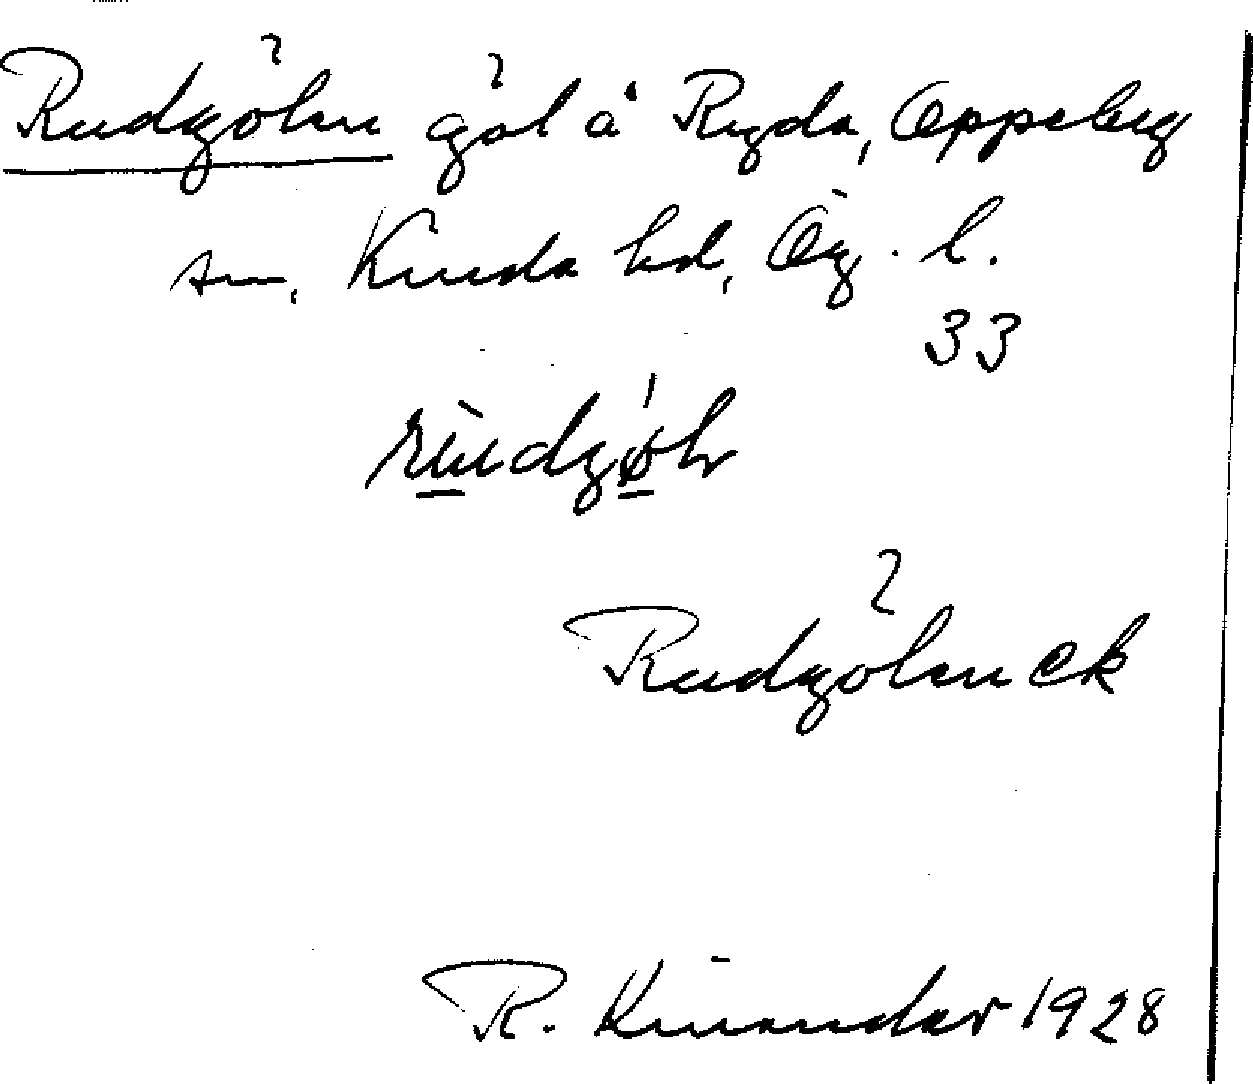 Rudgöln göl å Ryda, Oppeby
sn, Kinda hd, Ög. l.
33
Rudgölneck
R. Kinander 1928